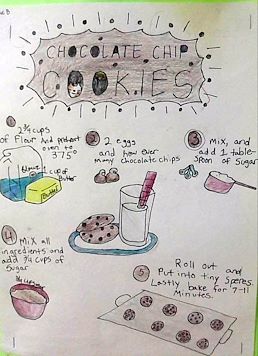 CHOCOLATE CHIP
COOKIES
① 2 3/4 cups
of Flour and preheat
oven to
375°
1 cup of
Butter
Butter
② 2 eggs
and how ever
many chocolate chips
③ Mix, and
add 1 table-
spoon of Sugar
④ Mix all
ingredients and
add 3/4 cups of
Sugar
⑤ Roll out and
Put into tiny Speres.
Lastly bake for 7-11
Minutes.